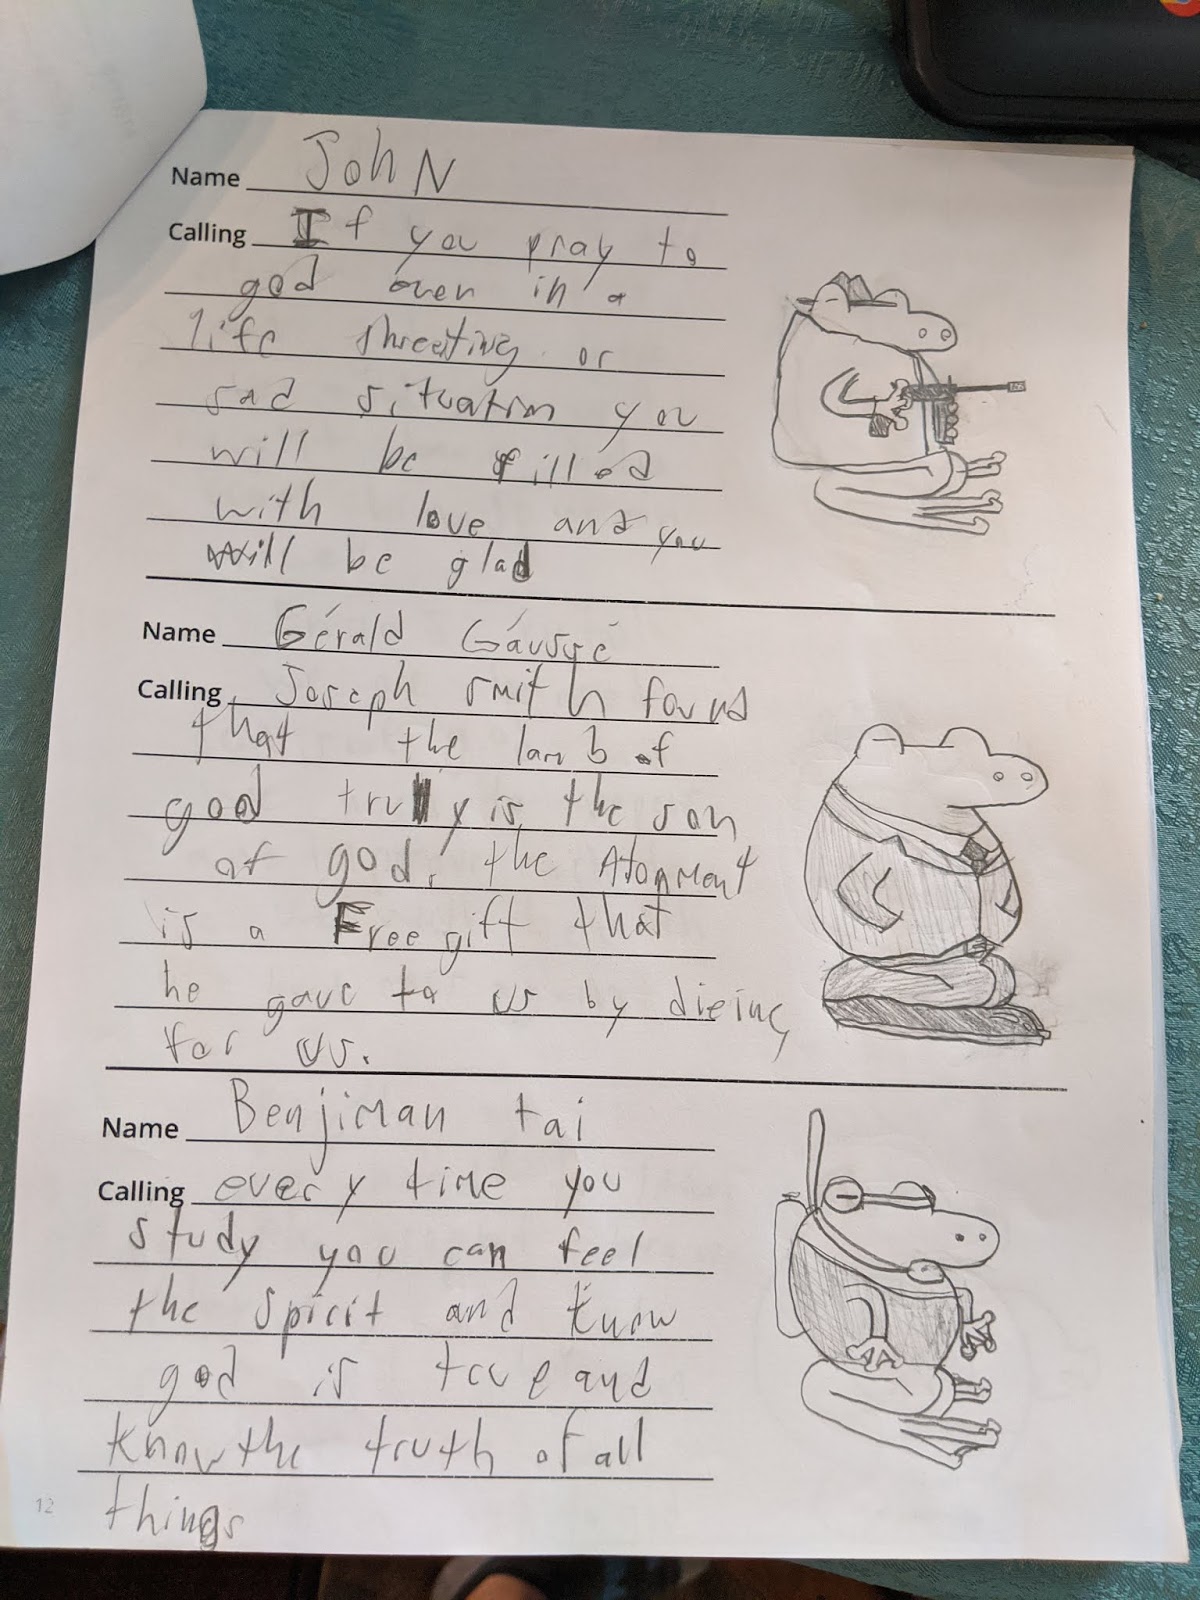 Name JohN
Calling If you pray to
god even in a
life threeting or
sad situation you
will be filled
with love and you
will be glad
Name Gérald Gáussé
Calling Joseph smith found
that the lamb of
god truly is the son
of god. the Atonment
is a Free gift that
he gave to us by dieing
for us.
Name Benjiman tai
Calling every time you
study you can feel
the spirit and know
god is true and
know the truth of all
things
12